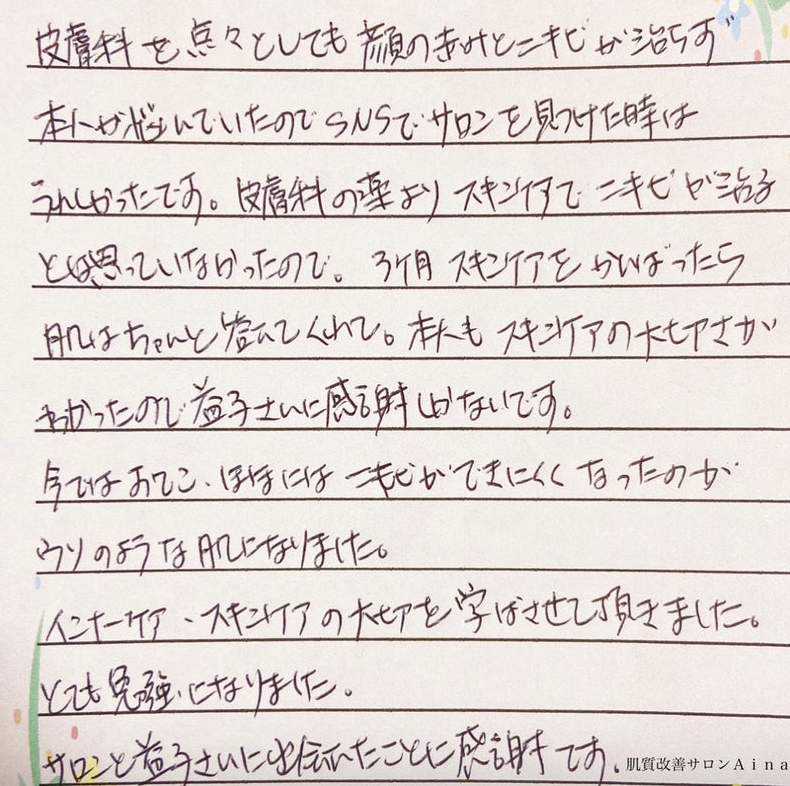 皮膚科を点々としても顔の赤みとニキビが治らず
本人が悩んでいたのでSNSでサロンを見つけた時は
うれしかったです。皮膚科の薬よりスキンケアでニキビが治る
とは思っていなかったので。3ヶ月スキンケアをがんばったら
肌はちゃんと答えてくれて。本人もスキンケアの大切さが
わかったので益子さんに感謝しかないです。
今ではおでこ、ほほにはニキビができにくくなったのが
ウソのような肌になりました。
インナーケア・スキンケアの大切を学ばさせて頂きました。
とても勉強になりました。
サロンと益子さんに出会えたことに感謝です。
肌質改善サロンAina